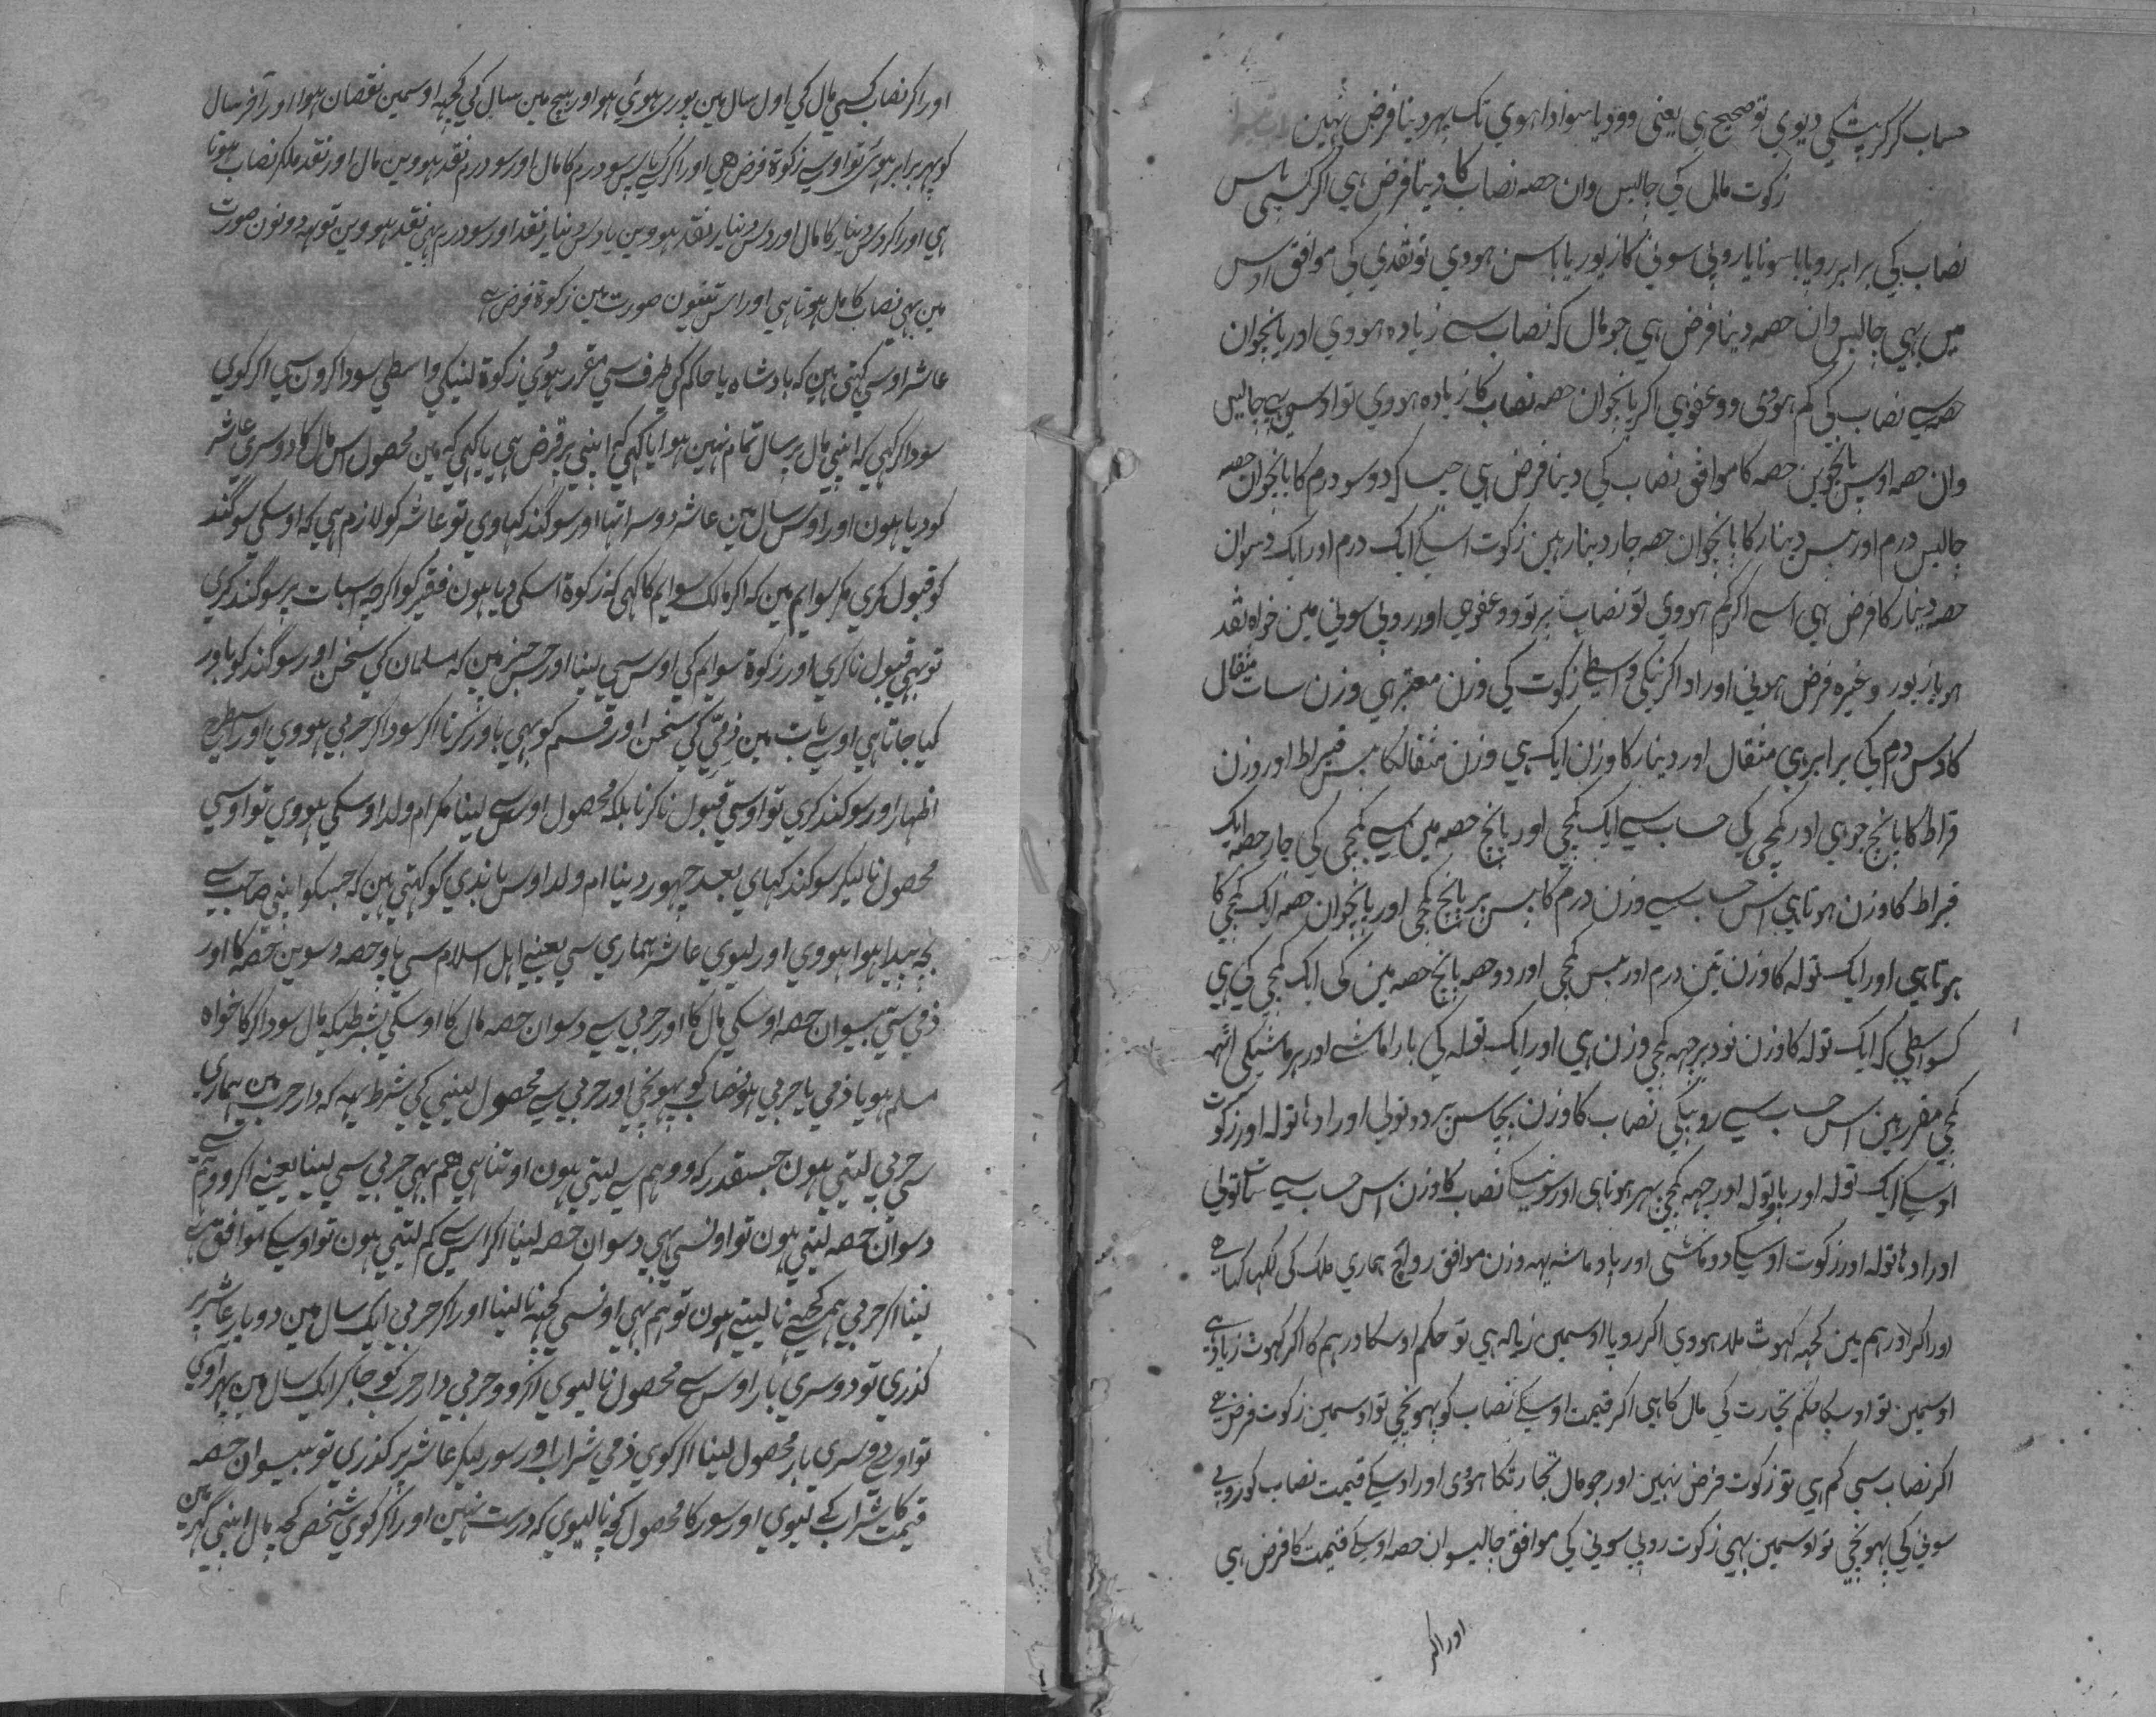 حساب کر کر پیشکی دیوی تو صحیح ہی یعنی وو دیا سو ادا ہوی تک پہر دینا فرض نہین
زکوت مال کی چالیس وان حصہ نصاب کا دینا فرض ہی اکر کسی پاس
نصاب کی برابر روپا یا سونا یا روپی سونی کا زیور یا باسن ہووی تو نقدی کی موافق اوس
میں بہی چالیس وان حصہ دینا فرض ہی جو مال کہ نصاب سے زیادہ ہووی اور پانچوان
حصہ سے نصاب کی کم ہووی وو عفو ہی اکر پانچوان حصہ نصاب کا زیادہ ہووی تو اوسمین بہی چالیس
وان حصہ اوس پانچوین حصہ کا موافق نصاب کی دینا فرض ہی جیسا کہ دو سو درم کا پانچوان حصہ
چالیس درم اور بیس دینار کا پانچوان حصہ چار دینار ہین زکوت اسکے ایک درم اور ایک دسوان
حصہ دینار کا فرض ہی اسے اکر کم ہووی تو نصاب پر تو وو عفو ہی اور روپی سونی مین خواہ نقد
ہو یا زیور وغیرہ فرض ہونی اور ادا کرنیکی واسطے زکوت کی وزن معتبر ہی وزن سات مثقال
کا دس درم کی برابر ہی مثقال اور دینار کا وزن ایک ہی وزن مثقالکا بیس قیراط اور وزن
قراط کا پانچ جو ہی اور کمچی کی حساب سے ایک کمچی اور پانچ حصہ میں سے کمچی کی چار حصہ ایک
قیراط کا وزن ہوتا ہی اس حساب سے وزن درم کا بیس پر پانچ کمچی اور پانچوان حصہ ایک کمچی کا
ہوتا ہی اور ایک تولہ کا وزن تین درم اور بیس کمچی اور دو حصہ پانچ حصہ مین کی ایک کمچی کی ہی
کسواسطی کہ ایک تولہ کا وزن نود پر چہہ کمچی وزن ہی اور ایک تولہ کی بارا ماشے اور ہر ماشیکی اٹہہ
کمچی مقرر ہین اس حساب سے روپیکی نصاب کا وزن پچاس پر دو تولی اور ادہا تولہ اور زکوت
اوسکے ایک تولہ اور پاو تولہ اور چہہ کمچی بہر ہوتا ہی اور سونیکے نصاب کا وزن اس حساب سے سات تولی
اور ادہا تولہ اور زکوت اوسکے دو ماشی اور پاو ماشہ یہہ وزن موافق رواج ہماری ملک کی لکہا کیا ہے
اور اکر درہم مین کچہہ کہوٹ ملا ہووی اکر روپا اوسمین زیادہ ہی تو حکم اوسکا درہم کا اکر کہوٹ زیادہ ہے
اوسمین تو اوسکا حکم تجارت کی مال کا ہی اکر قیمت اوسکے نصاب کو پہونچی تو اوسمین زکوت فرض ہے
اکر نصاب سی کم ہی تو زکوت فرض نہین اور جو مال تجارتکا ہووی اور اوسکے قیمت نصاب کو روپی
سونی کی پہونچی تو اوسمین بہی زکوت روپی سونی کی موافق چالیسوان حصہ اوسکے قیمت کا فرض ہی
اور اکر
اور اکر نصاب کسی مال کی اول سال مین پوری ہوئی ہو اور بیچ مین سال کی کچہہ اوسمین نقصان ہوا اور آخر سال
کو پہر برابر ہوئی تو اوسے زکوة فرض ہی اور اکر کسے پاس سو درم کا مال اور سو درم نقد ہووین مال اور نقد ملکر نصاب ہوتا
ہی اور اکر دس دینار کا مال اور دس دینار نقد ہووین یا دس دینار نقد اور سو درم بہی نقد ہووین تو یہہ دونون صورت
مین بہی نصاب کامل ہوتا ہی اور اس تینون صورت مین زکوة فرض ہے
عاشر اوسی کہتی ہین کہ بادشاہ یا حاکم کی طرف سی مقرر ہوئی زکوة لینیکی واسطی سوداکرون سی اکر کوی
سوداکر کہی کہ اپنی مال پر سال تمام نہین ہوا یا کہی کہ اپنی پر قرض ہی یا کہی کہ مین محصول اس مال کا دوسری عاشر
کو دیا ہون اور اوس سال مین عاشر دوسرا تہا اور سوکند کہاوی تو عاشر کو لازم ہی کہ اوسکی سوکند
کو قبول کری مکر سوایم مین کہ اکر مالک سوایم کا کہی کہ زکوة اسکی دیا ہون فقیر کو اکرچہ اسبات پر سوکند کری
تو بہی قبول نا کری اور زکوة سوایم کی اوس سی لینا اور جس چیز مین کہ مسلمان کی سخن اور سوکند کو باور
کیا جاتا ہی اوس بات مین ذمی کی سخن اور قسم کو بہی باور کرنا اکر سوداکر حربی ہووی اور اسطرح
اظہار اور سوکند کری تو اوسی قبول نا کرنا بلکہ محصول اوس سی لینا مکر ام ولد اوسکی ہووی تو اوسی
محصول نا لیکر سوکند کہای بعد چہور دینا ام ولد اوس باندی کو کہتی ہین کہ جسکو اپنی صاحب سے
بچہ پیدا ہوا ہووی اور لیوی عاشر ہماری سی یعنی اہل اسلام سی پاو حصہ دسوین حصہ کا اور
ذمی ستی بیسوان حصہ اوسکی مال کا اور حربی سے دسوان حصہ مال کا اوسکی بشرطیکہ مال سوداکر کا خواہ
مسلم ہو یا ذمی یا حربی ہو نصاب کو پہونچی اور حربی سے محصول لینی کی شرط یہہ کہ دار حرب مین ہماری
سی حربی لیتی ہون جسقدر کہ وو ہم سے لیتی ہون اوتنا ہی ہم بہی حربی سی لینا یعنے اکر وو ہم سے
دسوان حصہ لیتی ہون تو اونسی بہی دسوان حصہ لینا اکر اس سے کم لیتی ہون تو اوسکے موافق ہے
لینا اکر حربی ہم سے کچہہ نا لیتے ہون تو ہم بہی اونسی کچہہ نا لینا اور اکر حربی ایک سال مین دوبار عاشر پر
کذری تو دوسری بار اوس سے محصول نا لیوی اکر وو حربی دار حرب کو جا کر ایک سال مین پہر آوی
تو اوسے دوسری بار محصول لینا اکر کوی ذمی شراب اور سور لیکر عاشر پر کذری تو بیسوان حصہ
قیمت کا شراب کے لیوی اور سور کا محصول کچہہ نا لیوی کہ درست نہین اور اکر کوی شخص کچہہ مال اپنی کہر مین